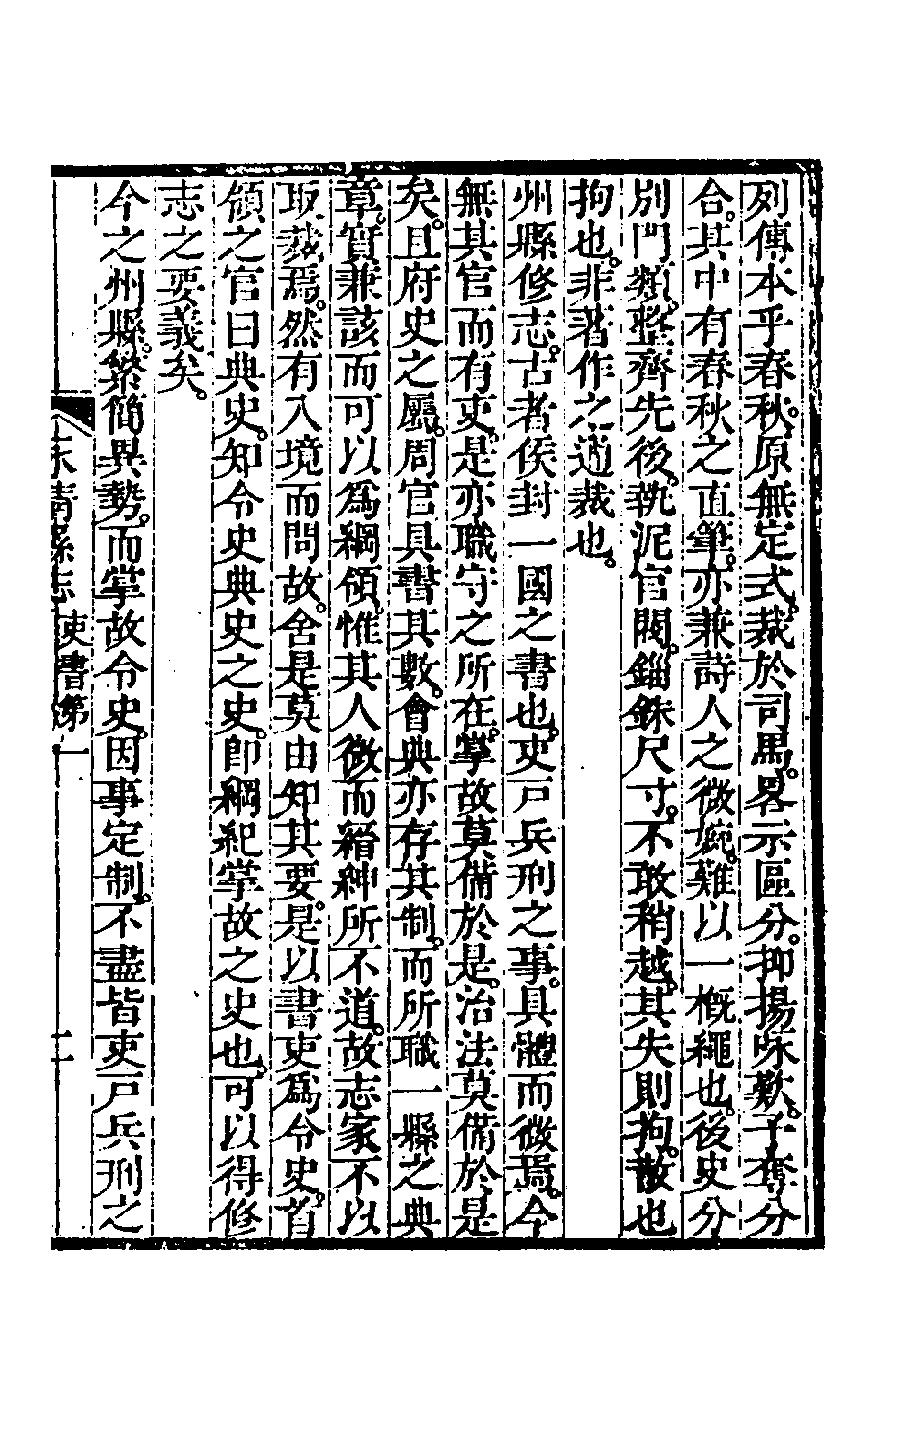 列傳本乎春秋。原無定式。裁於司馬。畧示區分。抑揚咏歎。予奪分
合。其中有春秋之直筆。亦兼詩人之微婉。難以一概繩也。後史分
別門類。整齊先後。執泥官閥。錙銖尺寸。不敢稍越。其失則拘。散也
拘也。非著作之通裁也。
州縣修志。古者侯封一國之書也。吏戸兵刑之事。具體而微焉。今
無其官而有吏。是亦職守之所在。掌故莫備於是。治法莫備於是
矣。且府史之屬。周官具書其數。會典亦存其制。而所職一縣之典
章。實兼該而可以爲綱領。惟其人微而縉紳所不道。故志家不以
取裁焉。然有入境而問故。舍是莫由知其要。是以書吏爲令史。首
領之官曰典史。知令史典史之史。卽綱紀掌故之史也。可以得修
志之要義矣。
今之州縣。繁簡異勢。而掌故令史。因事定制。不盡皆吏戸兵刑之
永清縣志 吏書第一 二